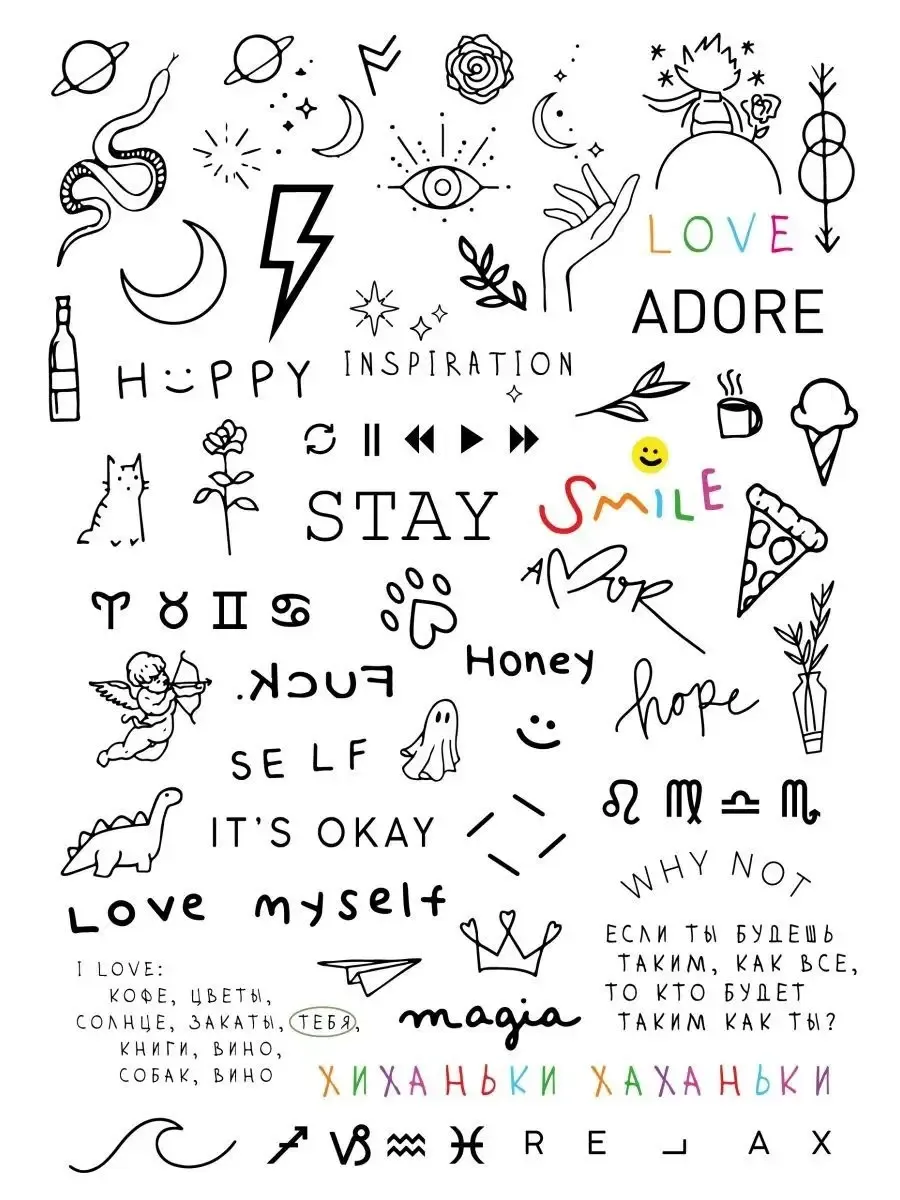 LOVE
ADORE
INSPIRATION
HAPPY
STAY
SMILE
AMOR
♈ ♉ ♊ ♋
Honey
FUCK.
hope
SELF
♌ ♍ ♎ ♏
IT'S OKAY
WHY NOT
Love myself
ЕСЛИ ТЫ БУДЕШЬ
ТАКИМ, КАК ВСЕ,
ТО КТО БУДЕТ
ТАКИМ КАК ТЫ?
I LOVE:
КОФЕ, ЦВЕТЫ,
СОЛНЦЕ, ЗАКАТЫ, ТЕБЯ,
КНИГИ, ВИНО,
СОБАК, ВИНО
magia
ХИХАНЬКИ ХАХАНЬКИ
♐ ♑ ♒ ♓
RELAX